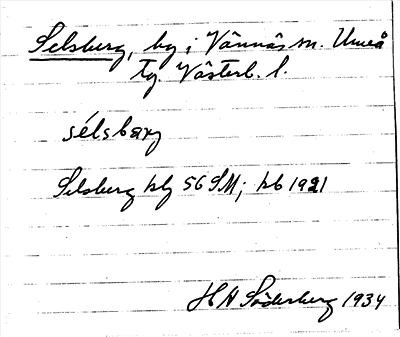 Selsberg, by i Vännäs sn. Umeå
tg. Västerb. l.
sélsbærj
Selsberg kbf 56 SM; kb 1921
H A Söderberg 1934